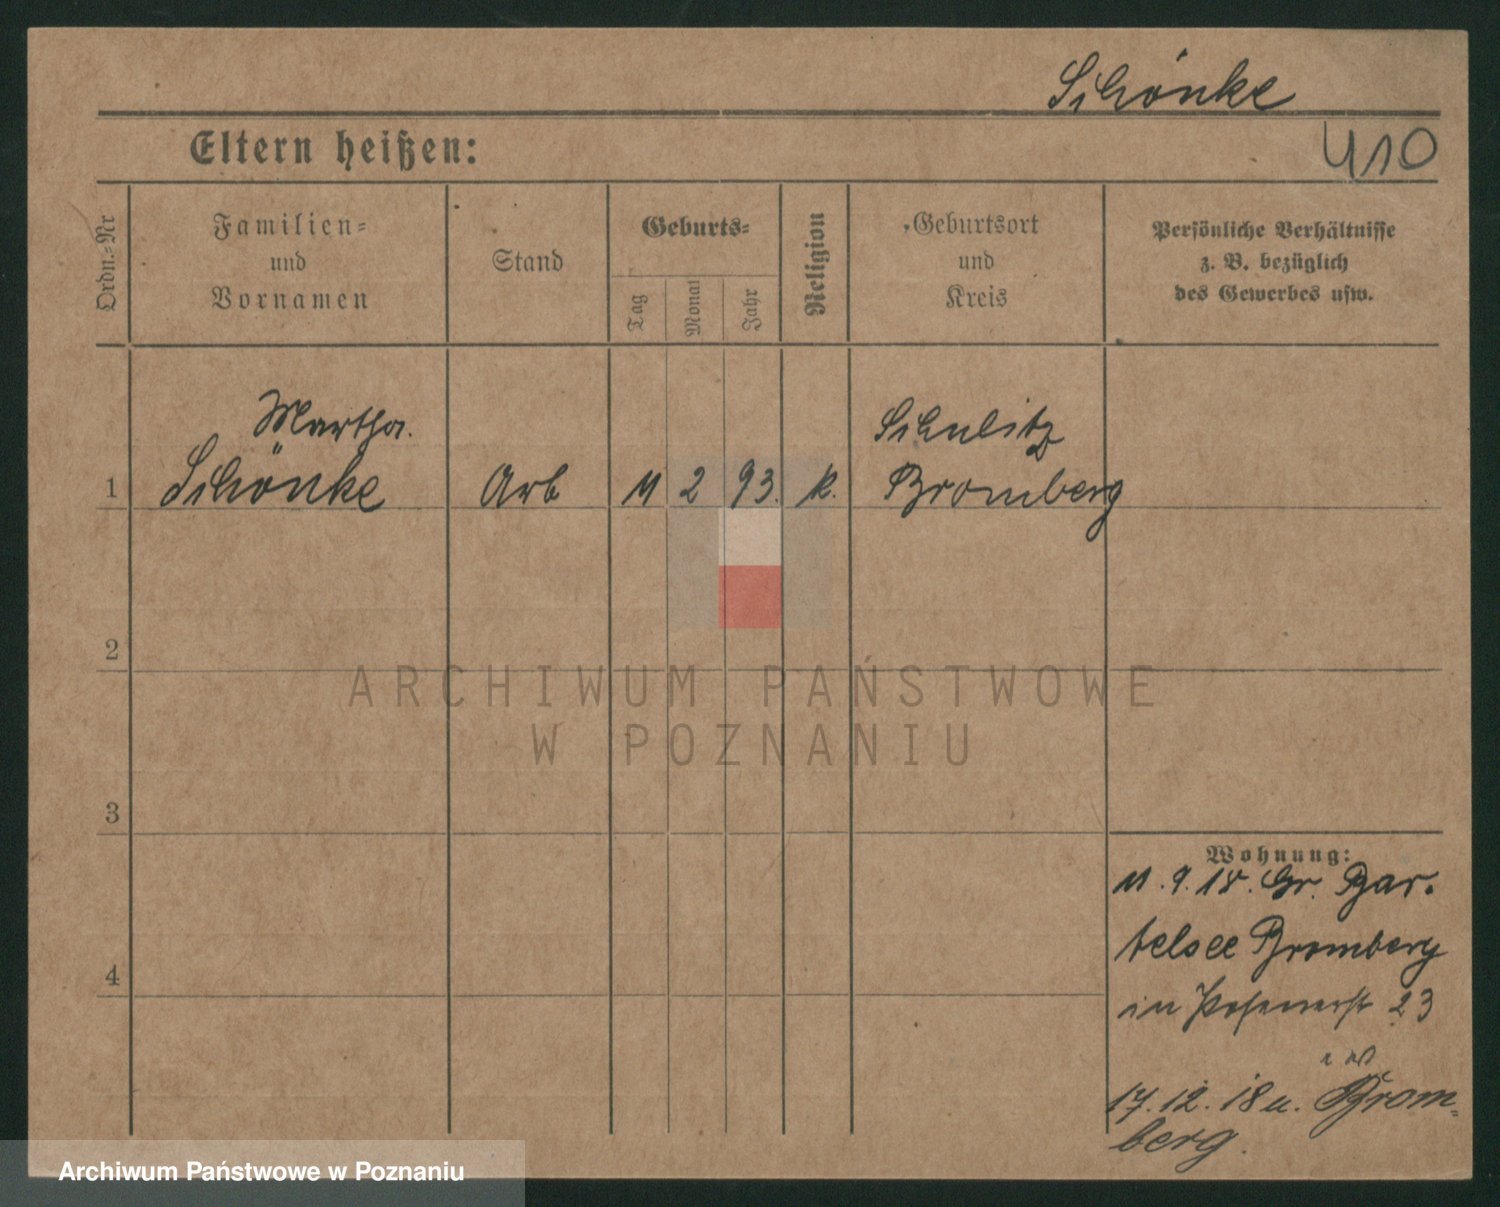 Schönke
Eltern heißen:
410
Ordn.=Nr
Familien=
und
Vornamen
Stand
Geburts=
Tag
Monat
Jahr
Religion
Geburtsort
und
Kreis
Persönliche Verhältnisse
z. B. bezüglich
des Gewerbes usw.
Martha.
Schönke
1
Arb
11
2
93.
k.
Schulitz
Bromberg
2
ARCHIWUM PAŃSTWOWE
W POZNANIU
3
4
Wohnung:
11. 9. 18. Gr. Bar-
telsee Bromberg
in Posenerstr 23
17. 12. 18 u. Brom=
berg.
Archiwum Państwowe w Poznaniu